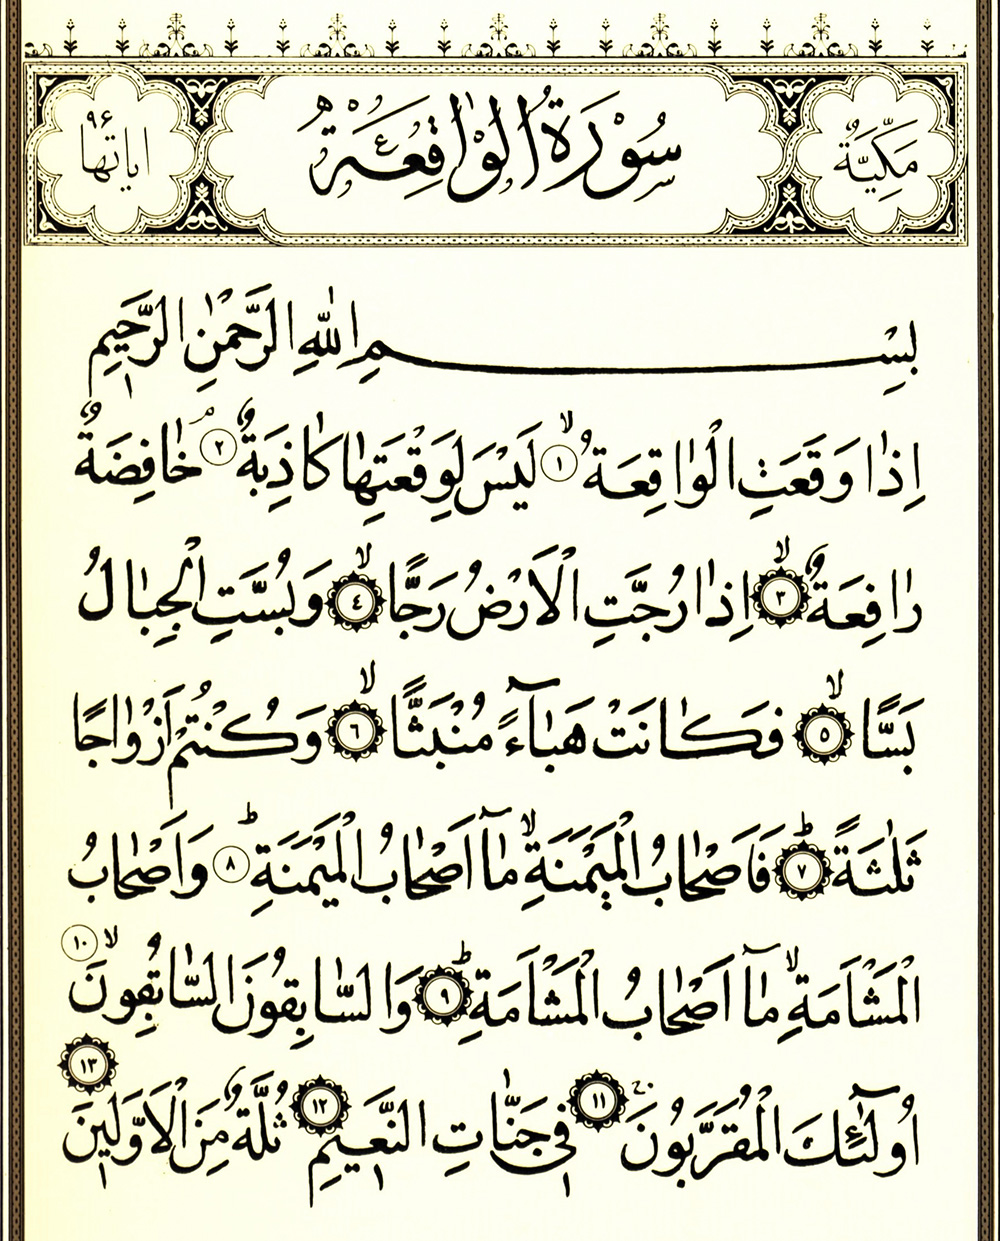 مَكِّيَّةٌ سُورَةُ الْوَاقِعَةِ اياتها ٩۶
بِسْمِ اللهِ الرَّحْمٰنِ الرَّحِيمِ
اِذَا وَقَعَتِ الْوَاقِعَةُ ١ لَيْسَ لِوَقْعَتِهَا كَاذِبَةٌ ٢ خَافِضَةٌ
رَافِعَةٌ ٣ اِذَا رُجَّتِ الْاَرْضُ رَجًّا ٤ وَبُسَّتِ الْجِبَالُ
بَسًّا ٥ فَكَانَتْ هَبَآءً مُنْبَثًّا ٦ وَكُنْتُمْ اَزْوَاجًا
ثَلٰثَةً ٧ فَاَصْحَابُ الْمَيْمَنَةِ مَآ اَصْحَابُ الْمَيْمَنَةِ ٨ وَاَصْحَابُ
الْمَشْاَمَةِ مَآ اَصْحَابُ الْمَشْاَمَةِ ٩ وَالسَّابِقُونَ السَّابِقُونَ ١٠
اُولٰٓئِكَ الْمُقَرَّبُونَ ١١ فِي جَنَّاتِ النَّعِيمِ ١٢ ثُلَّةٌ مِنَ الْاَوَّلِينَ ١٣